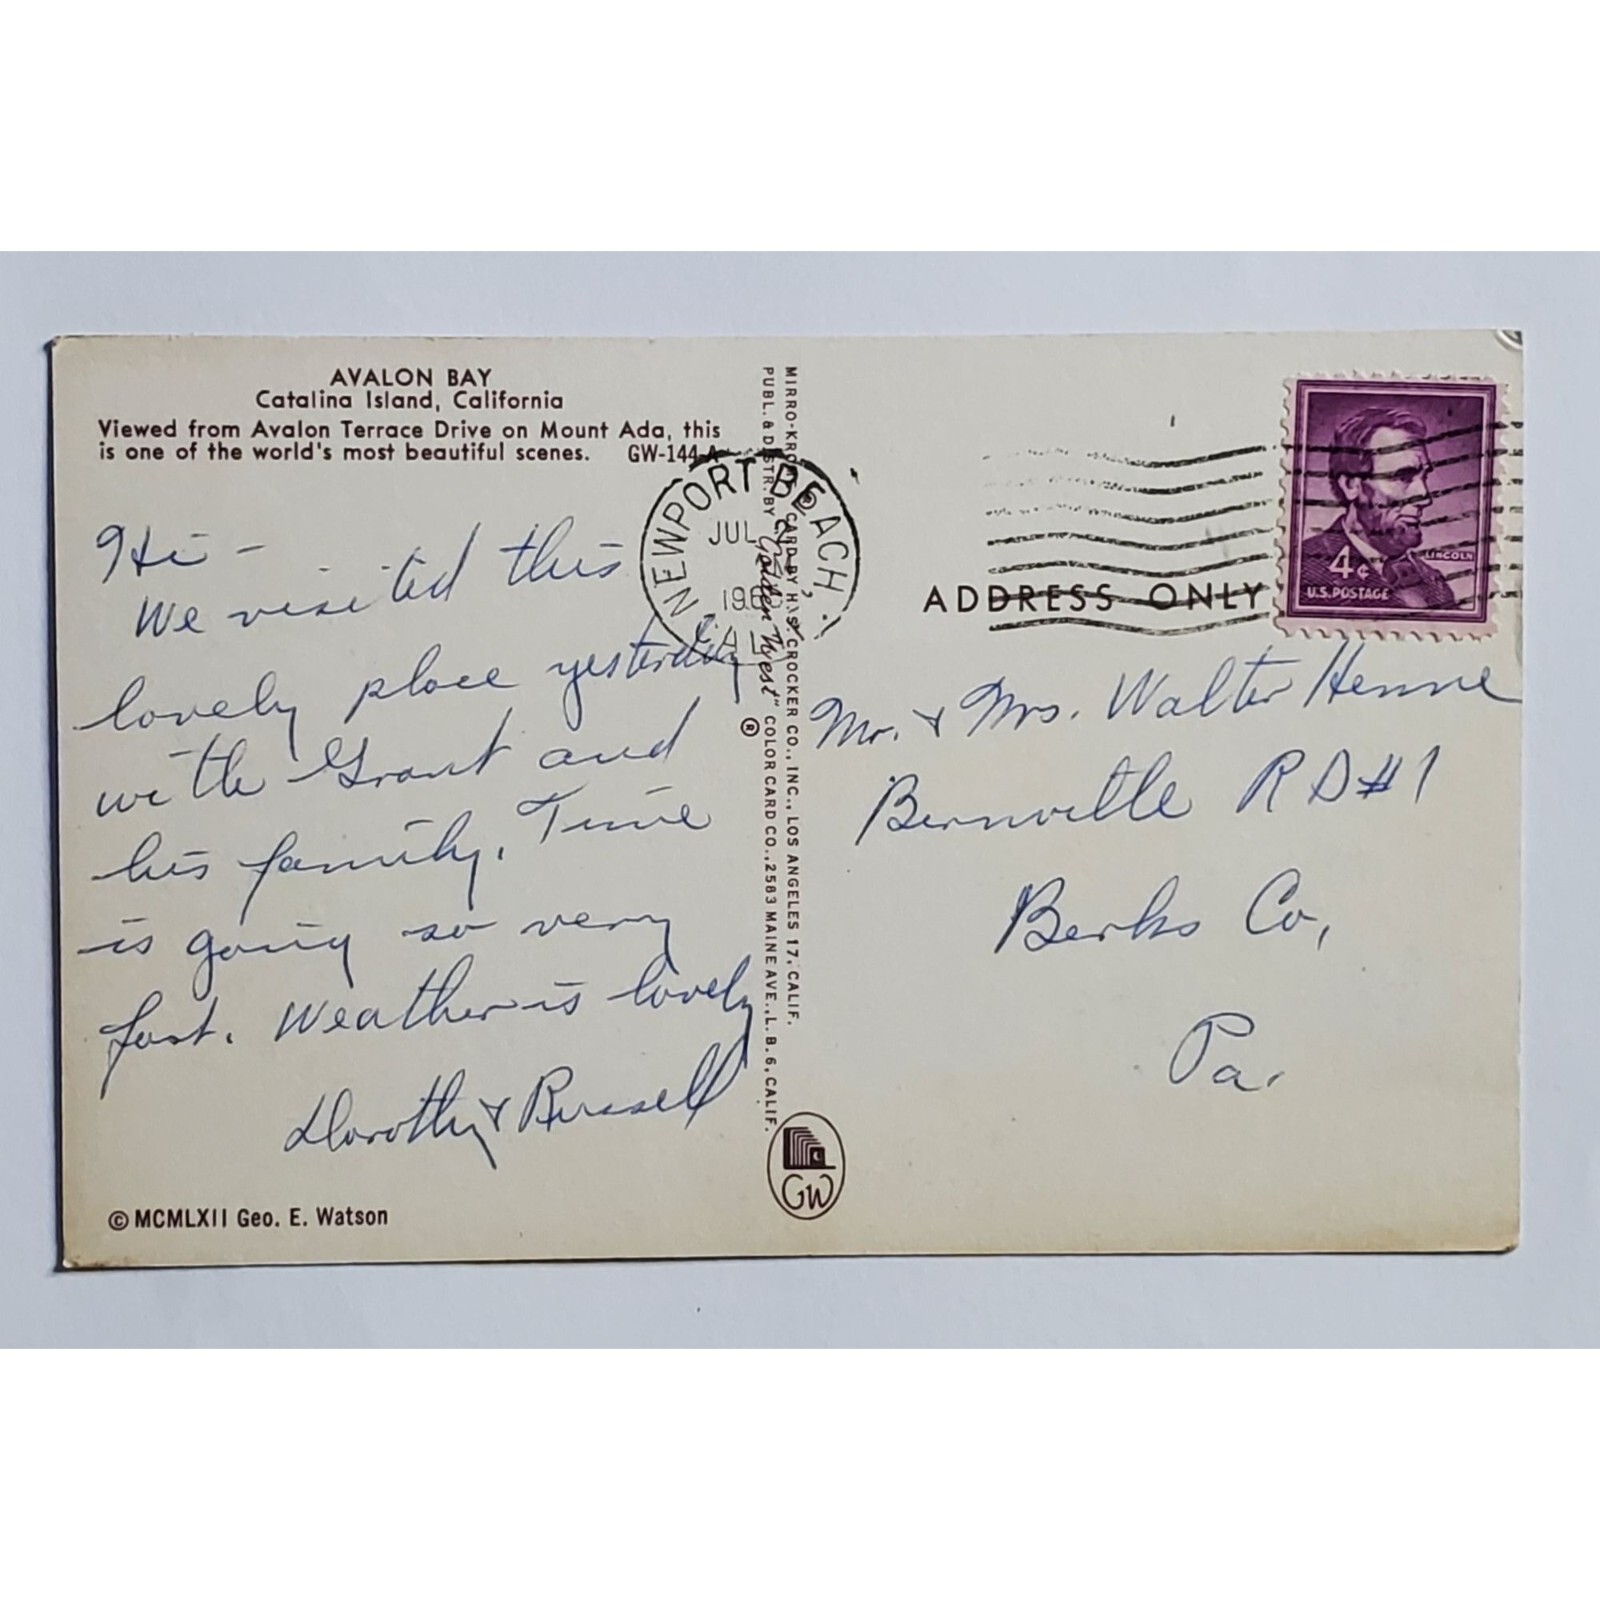 AVALON BAY
Catalina Island, California
Viewed from Avalon Terrace Drive on Mount Ada, this
is one of the world's most beautiful scenes. GW-144-A
Hi -
We visited this
lovely place yesterday
with Grant and
his family. Time
is going so very
fast. Weather is lovely
Dorothy & Russell
© MCMLXII Geo. E. Watson
MIRRO-KROME CARD BY H.S. CROCKER CO., INC., LOS ANGELES 17, CALIF.
PUBL. & DISTR. BY "Golden West" COLOR CARD CO., 2583 MAINE AVE., L.B. 6, CALIF.
®
GW
NEWPORT BEACH
JUL
CALIF
4¢
LINCOLN
U.S. POSTAGE
ADDRESS ONLY
Mr. & Mrs. Walter Henne
Bernville R D #1
Berks Co,
Pa.